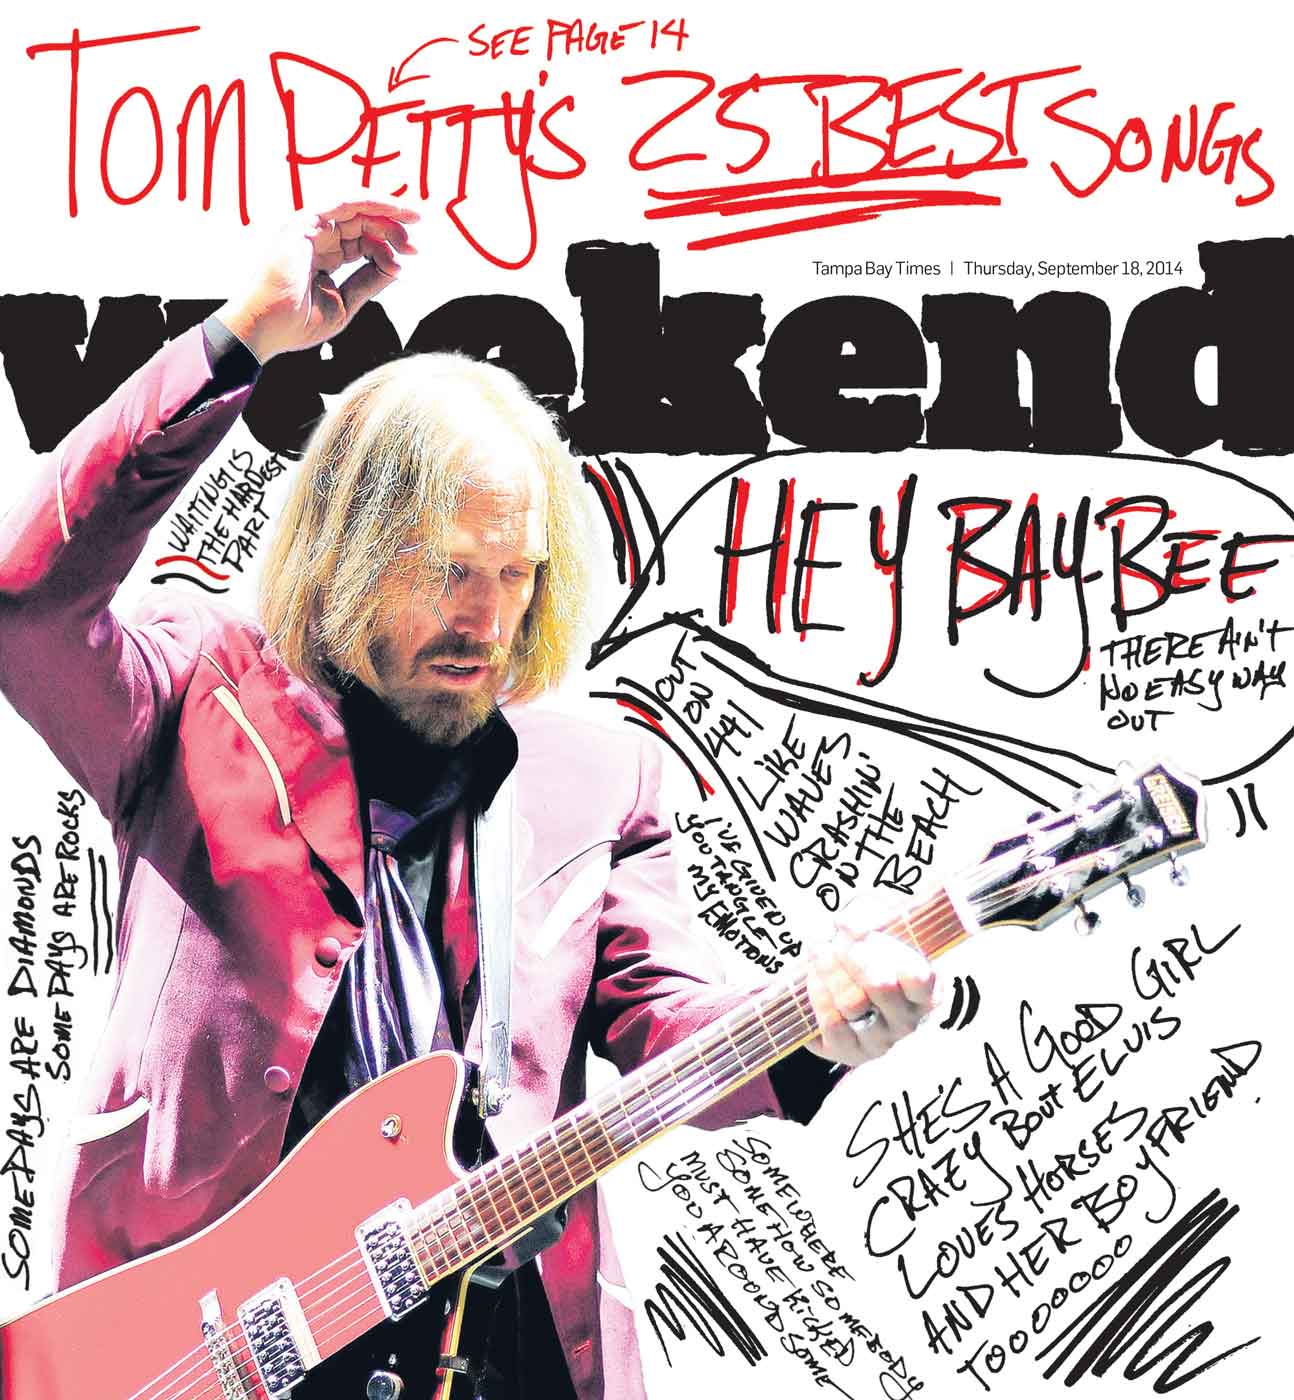 SEE PAGE 14
TOM PETTY'S 25 BEST SONGS
Tampa Bay Times | Thursday, September 18, 2014
weekend
WAITING IS
THE HARDEST
PART
HEY BAY-BEE
THERE AIN'T
NO EASY WAY
OUT
OUT
ON
441
LIKE
WAVES
CRASHIN'
ON THE
BEACH
I'VE GIVEN UP
YOU TANGLE
MY EMOTIONS
GRETSCH
SOME DAYS ARE DIAMONDS
SOME DAYS ARE ROCKS
SHE'S A GOOD GIRL
CRAZY BOUT ELVIS
LOVES HORSES
AND HER BOYFRIEND
TOOOOOOO
SOMEWHERE
SOMEHOW SOMEBODY
MUST HAVE KICKED
YOU AROUND SOME